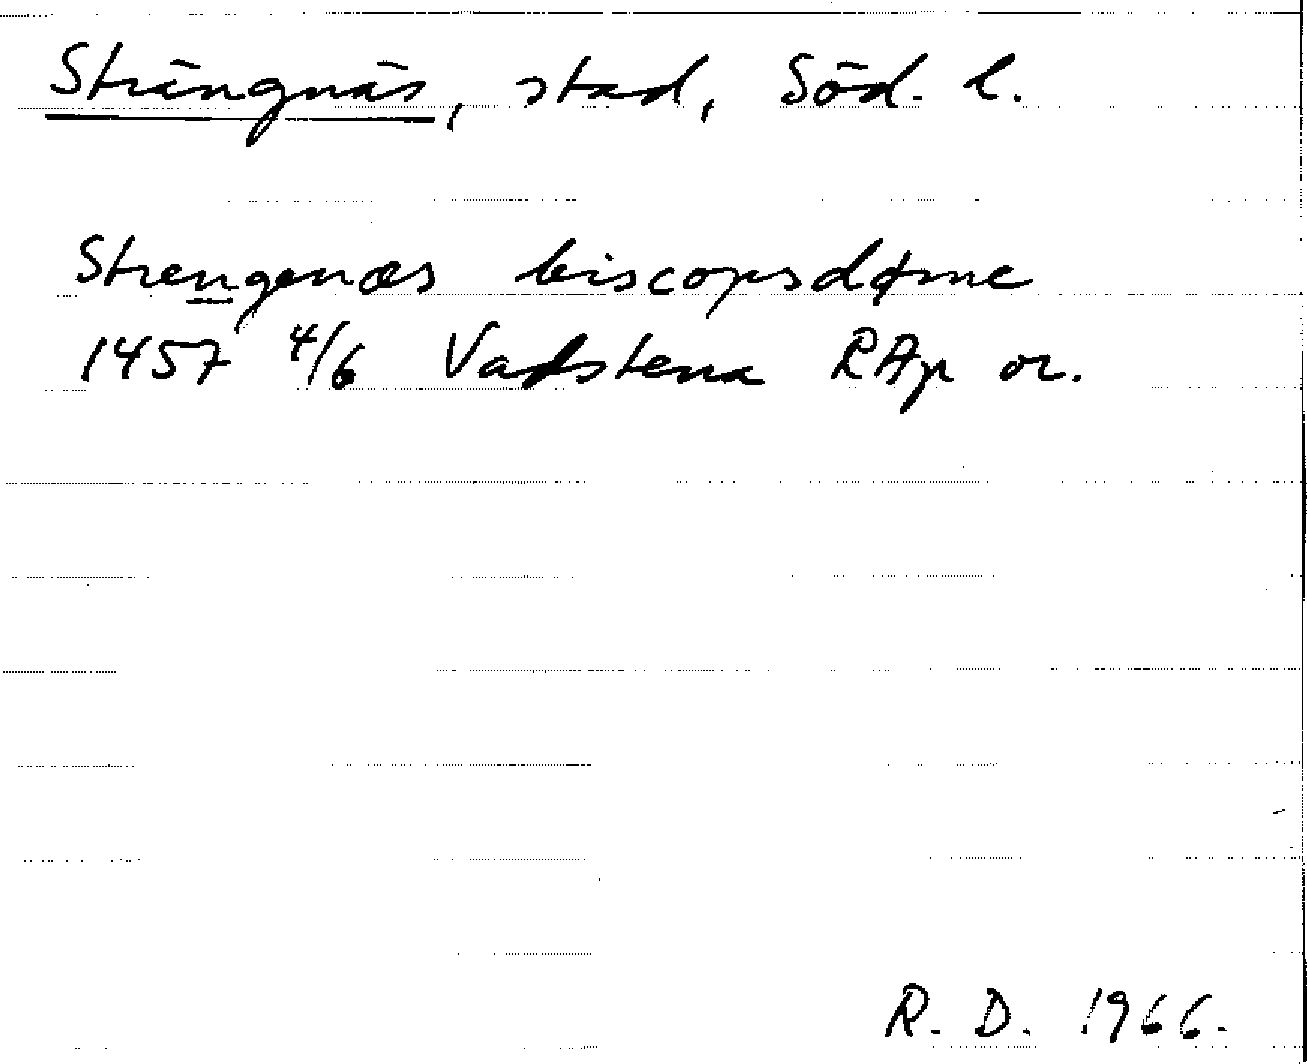 Strängnäs, stad, Söd. l.
Strengenæs biscopsdøme
1457 4/6 Vadstena RAp or.
R. D. 1966.